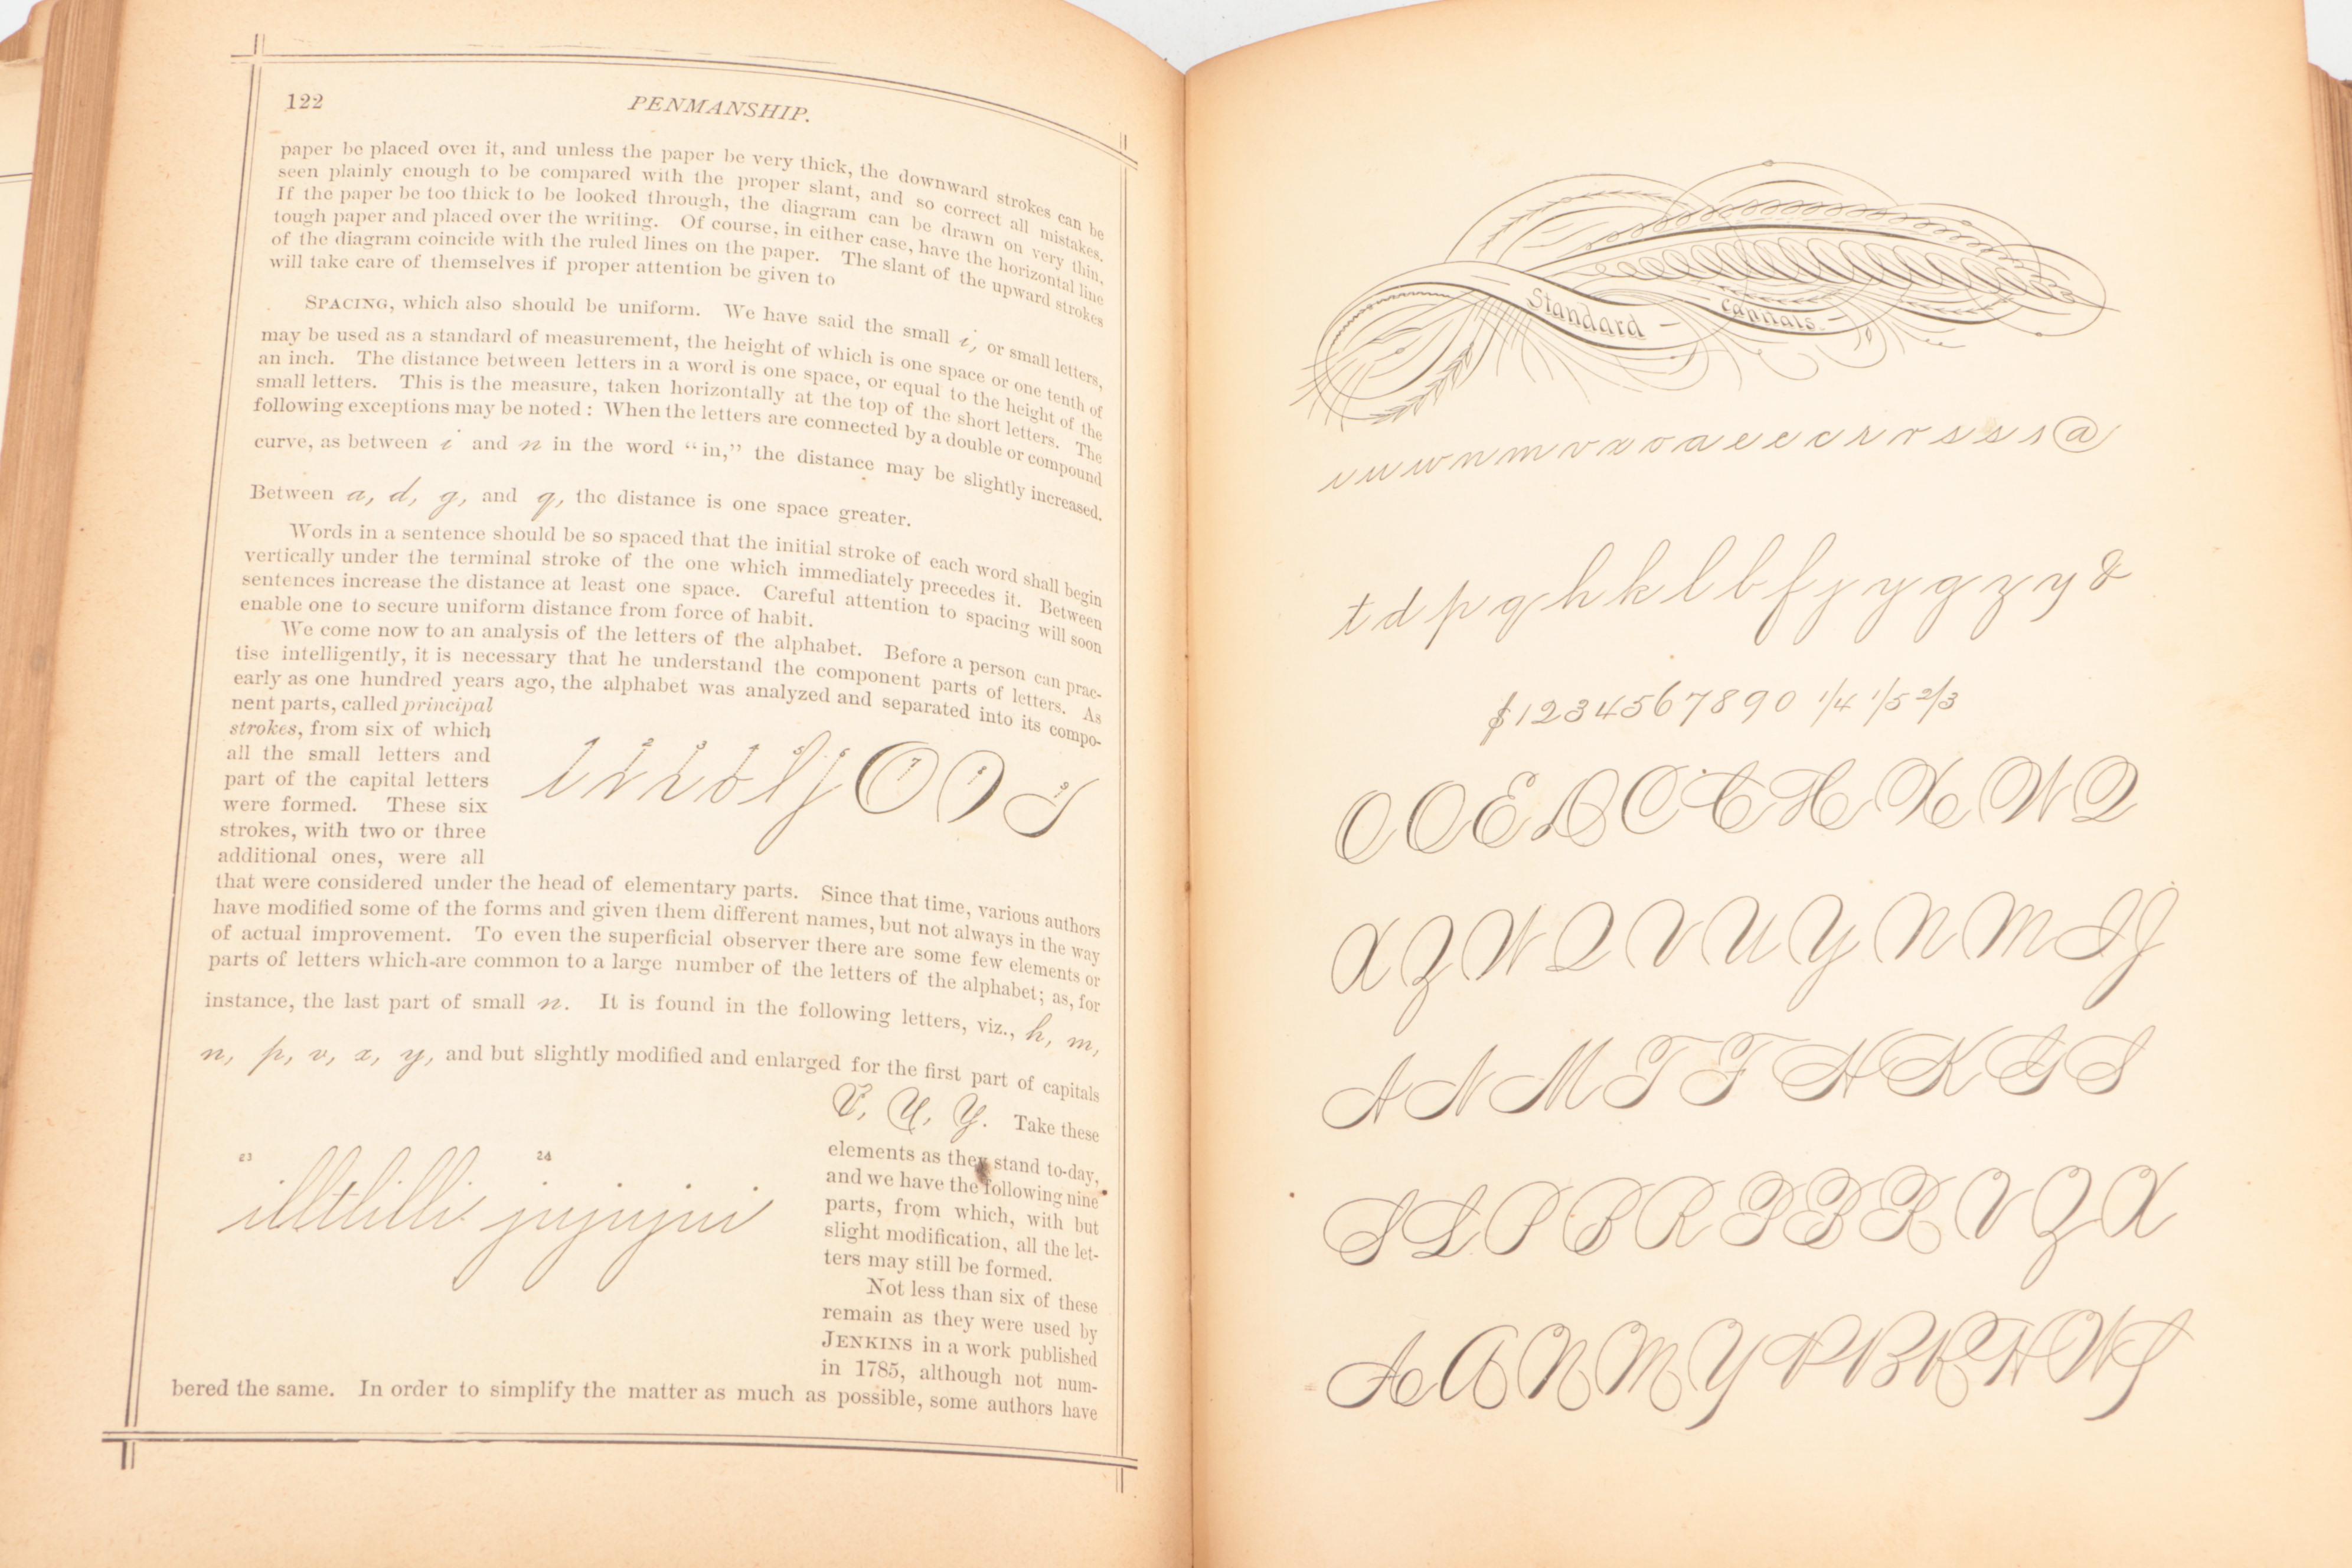 122
PENMANSHIP.
paper be placed over it, and unless the paper be very thick, the downward strokes can be
seen plainly enough to be compared with the proper slant, and so correct all mistakes.
If the paper be too thick to be looked through, the diagram can be drawn on very thin,
tough paper and placed over the writing. Of course, in either case, have the horizontal line
of the diagram coincide with the ruled lines on the paper. The slant of the upward strokes
will take care of themselves if proper attention be given to
SPACING, which also should be uniform. We have said the small i, or small letters,
may be used as a standard of measurement, the height of which is one space or one tenth of
an inch. The distance between letters in a word is one space, or equal to the height of the
small letters. This is the measure, taken horizontally at the top of the short letters. The
following exceptions may be noted: When the letters are connected by a double or compound
curve, as between i and n in the word "in," the distance may be slightly increased.
Between a, d, g, and q, the distance is one space greater.
Words in a sentence should be so spaced that the initial stroke of each word shall begin
vertically under the terminal stroke of the one which immediately precedes it. Between
sentences increase the distance at least one space. Careful attention to spacing will soon
enable one to secure uniform distance from force of habit.
We come now to an analysis of the letters of the alphabet. Before a person can prac-
tise intelligently, it is necessary that he understand the component parts of letters. As
early as one hundred years ago, the alphabet was analyzed and separated into its compo-
nent parts, called principal
strokes, from six of which
all the small letters and
part of the capital letters
were formed. These six
strokes, with two or three
additional ones, were all
1 2 3 4 5 6 7 8 9
that were considered under the head of elementary parts. Since that time, various authors
have modified some of the forms and given them different names, but not always in the way
of actual improvement. To even the superficial observer there are some few elements or
parts of letters which are common to a large number of the letters of the alphabet; as, for
instance, the last part of small n. It is found in the following letters, viz., h, m,
n, p, v, x, y, and but slightly modified and enlarged for the first part of capitals
V, U, Y. Take these
elements as they stand to-day,
and we have the following nine
parts, from which, with but
slight modification, all the let-
ters may still be formed.
Not less than six of these
remain as they were used by
JENKINS in a work published
in 1785, although not num-
23 24
bered the same. In order to simplify the matter as much as possible, some authors have
Standard Capitals
t d p q h k l b f j y g z y &
$1234567890 1/4 1/5 2/3
O O E D C C H X W Q
X Z W Q V U Y N M I J
A N M T F H K G S
S L P B R P B R V Z X
A A N M Y P B R H W S